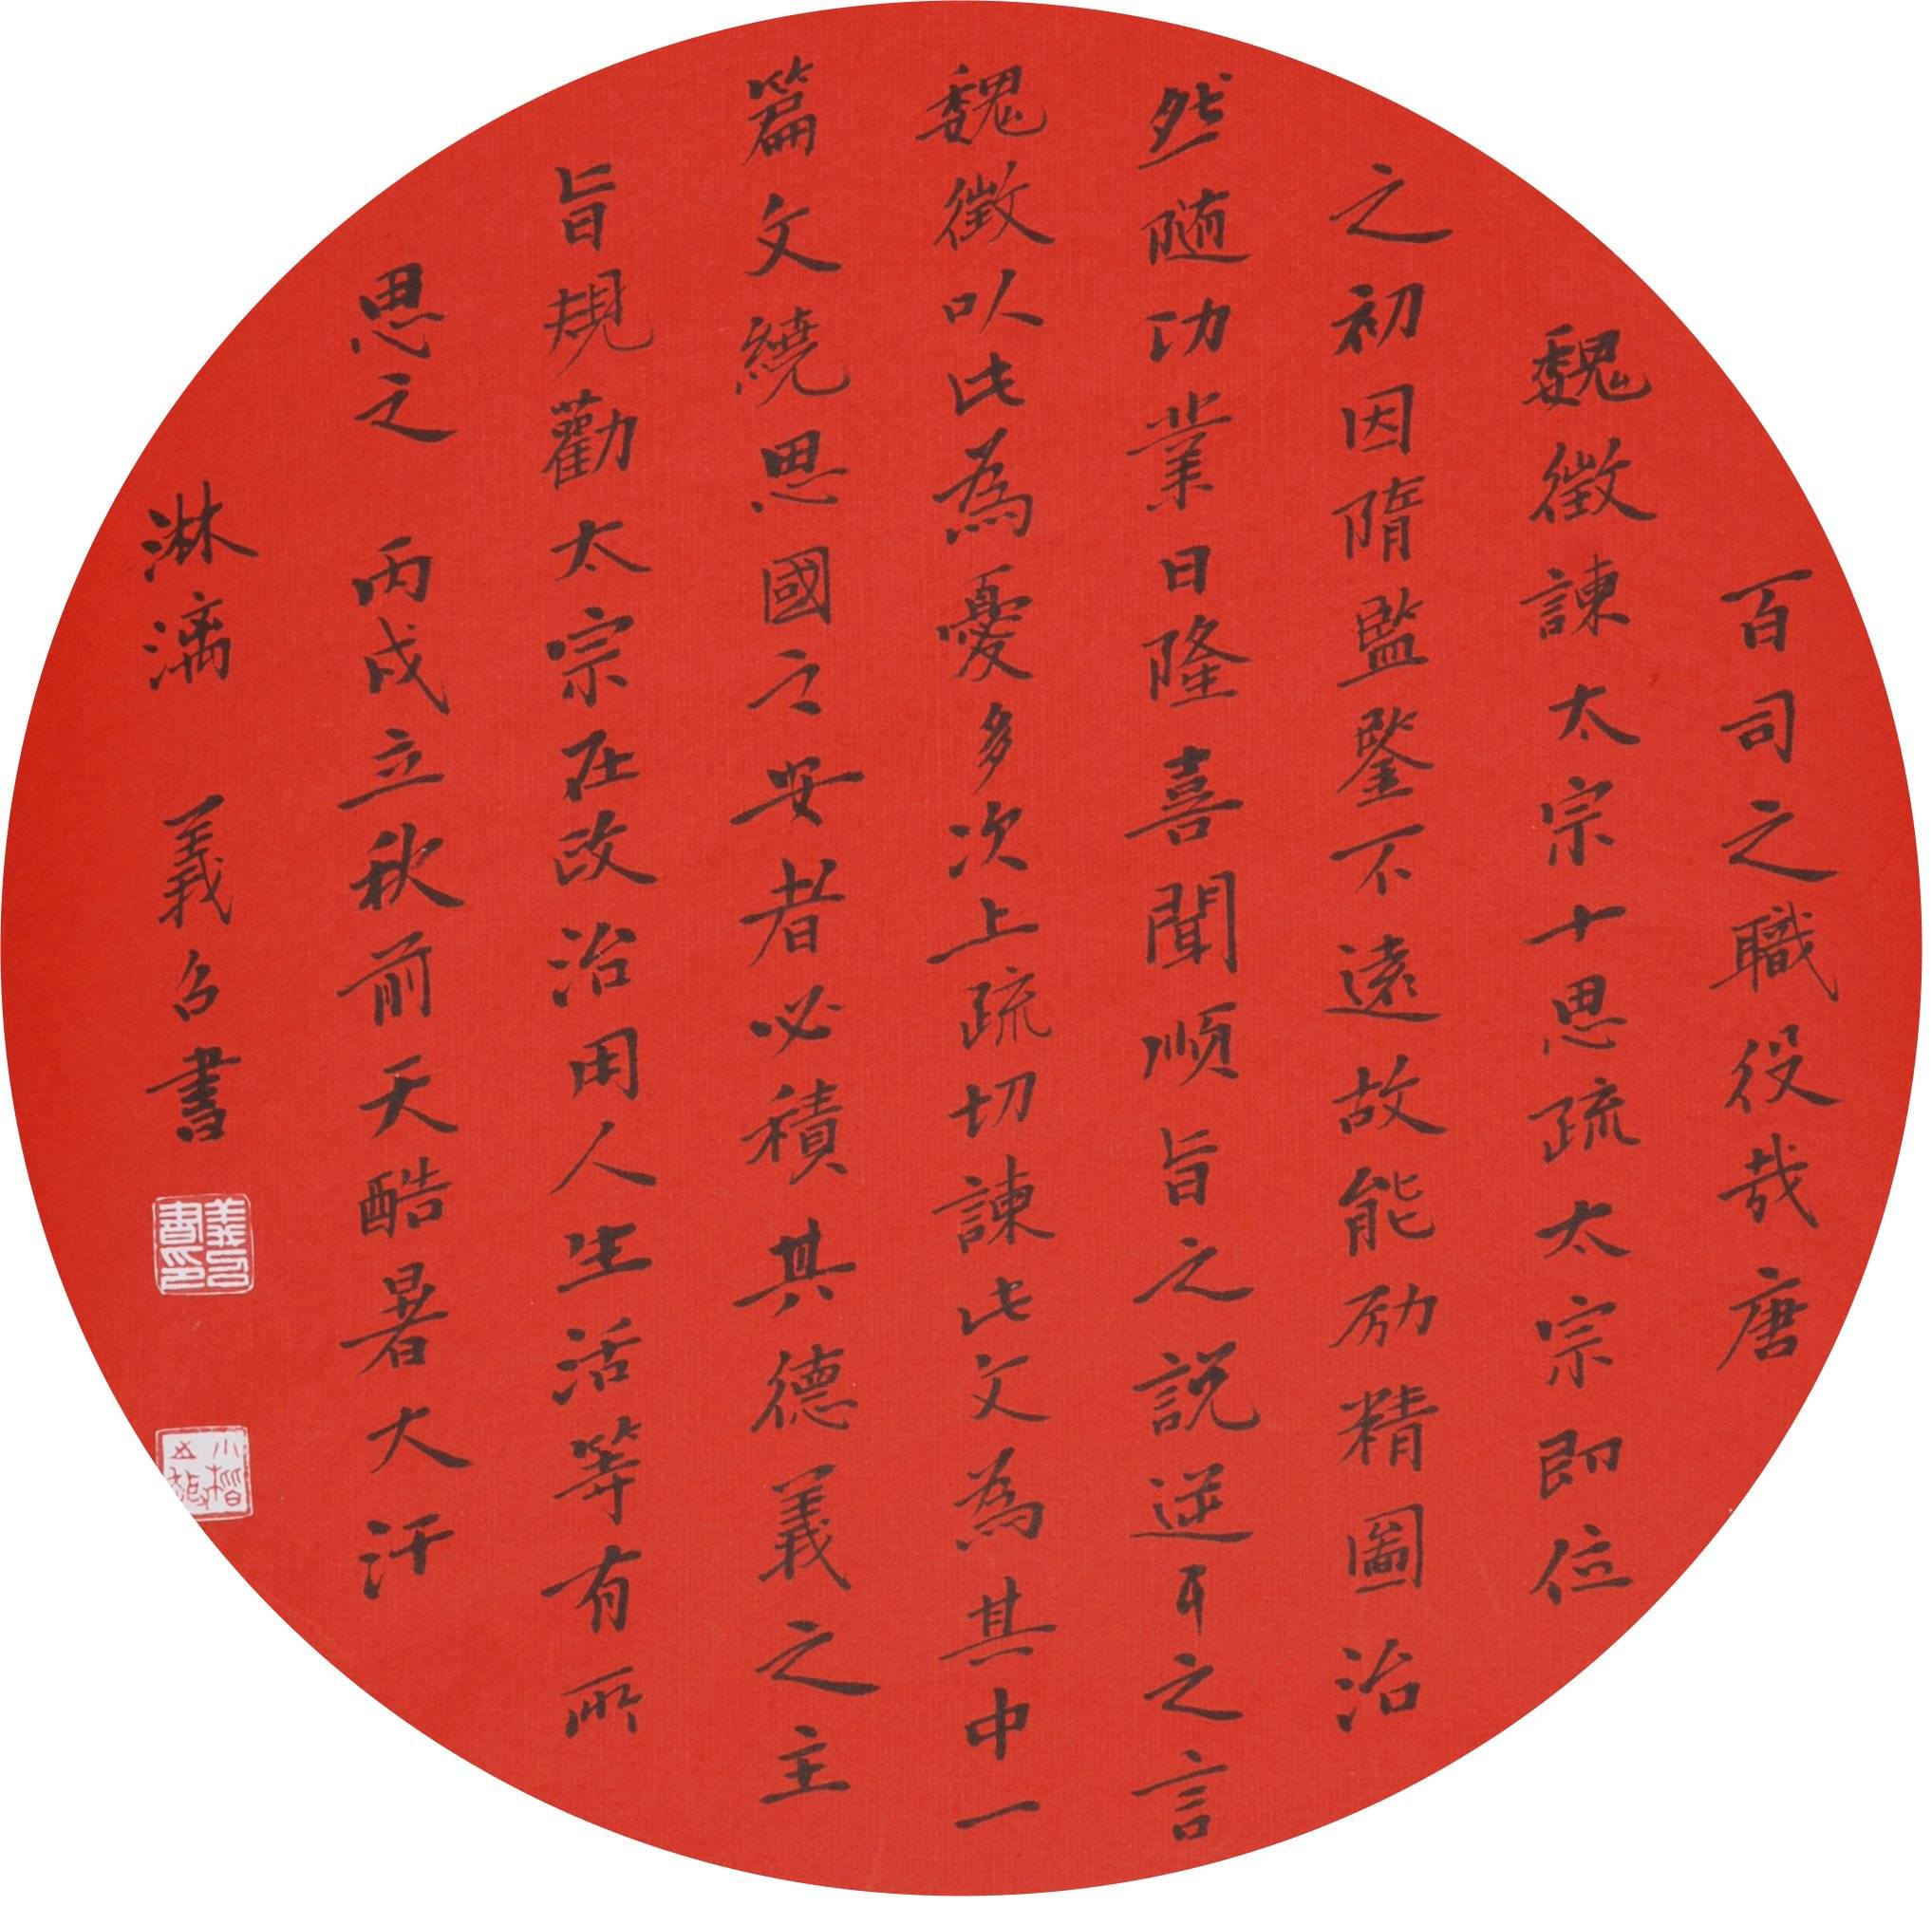 百司之職役哉唐
魏徵諫太宗十思疏太宗即位
之初因隋監鑒不遠故能励精圖治
然随功業日隆喜聞順旨之説逆耳之言
魏徵以此為憂多次上疏切諫此文為其中一
篇文繞思國之安者必積其德義之主
旨規勸太宗在政治用人生活等有所
思之 丙戌立秋前天酷暑大汗
淋漓 義名書